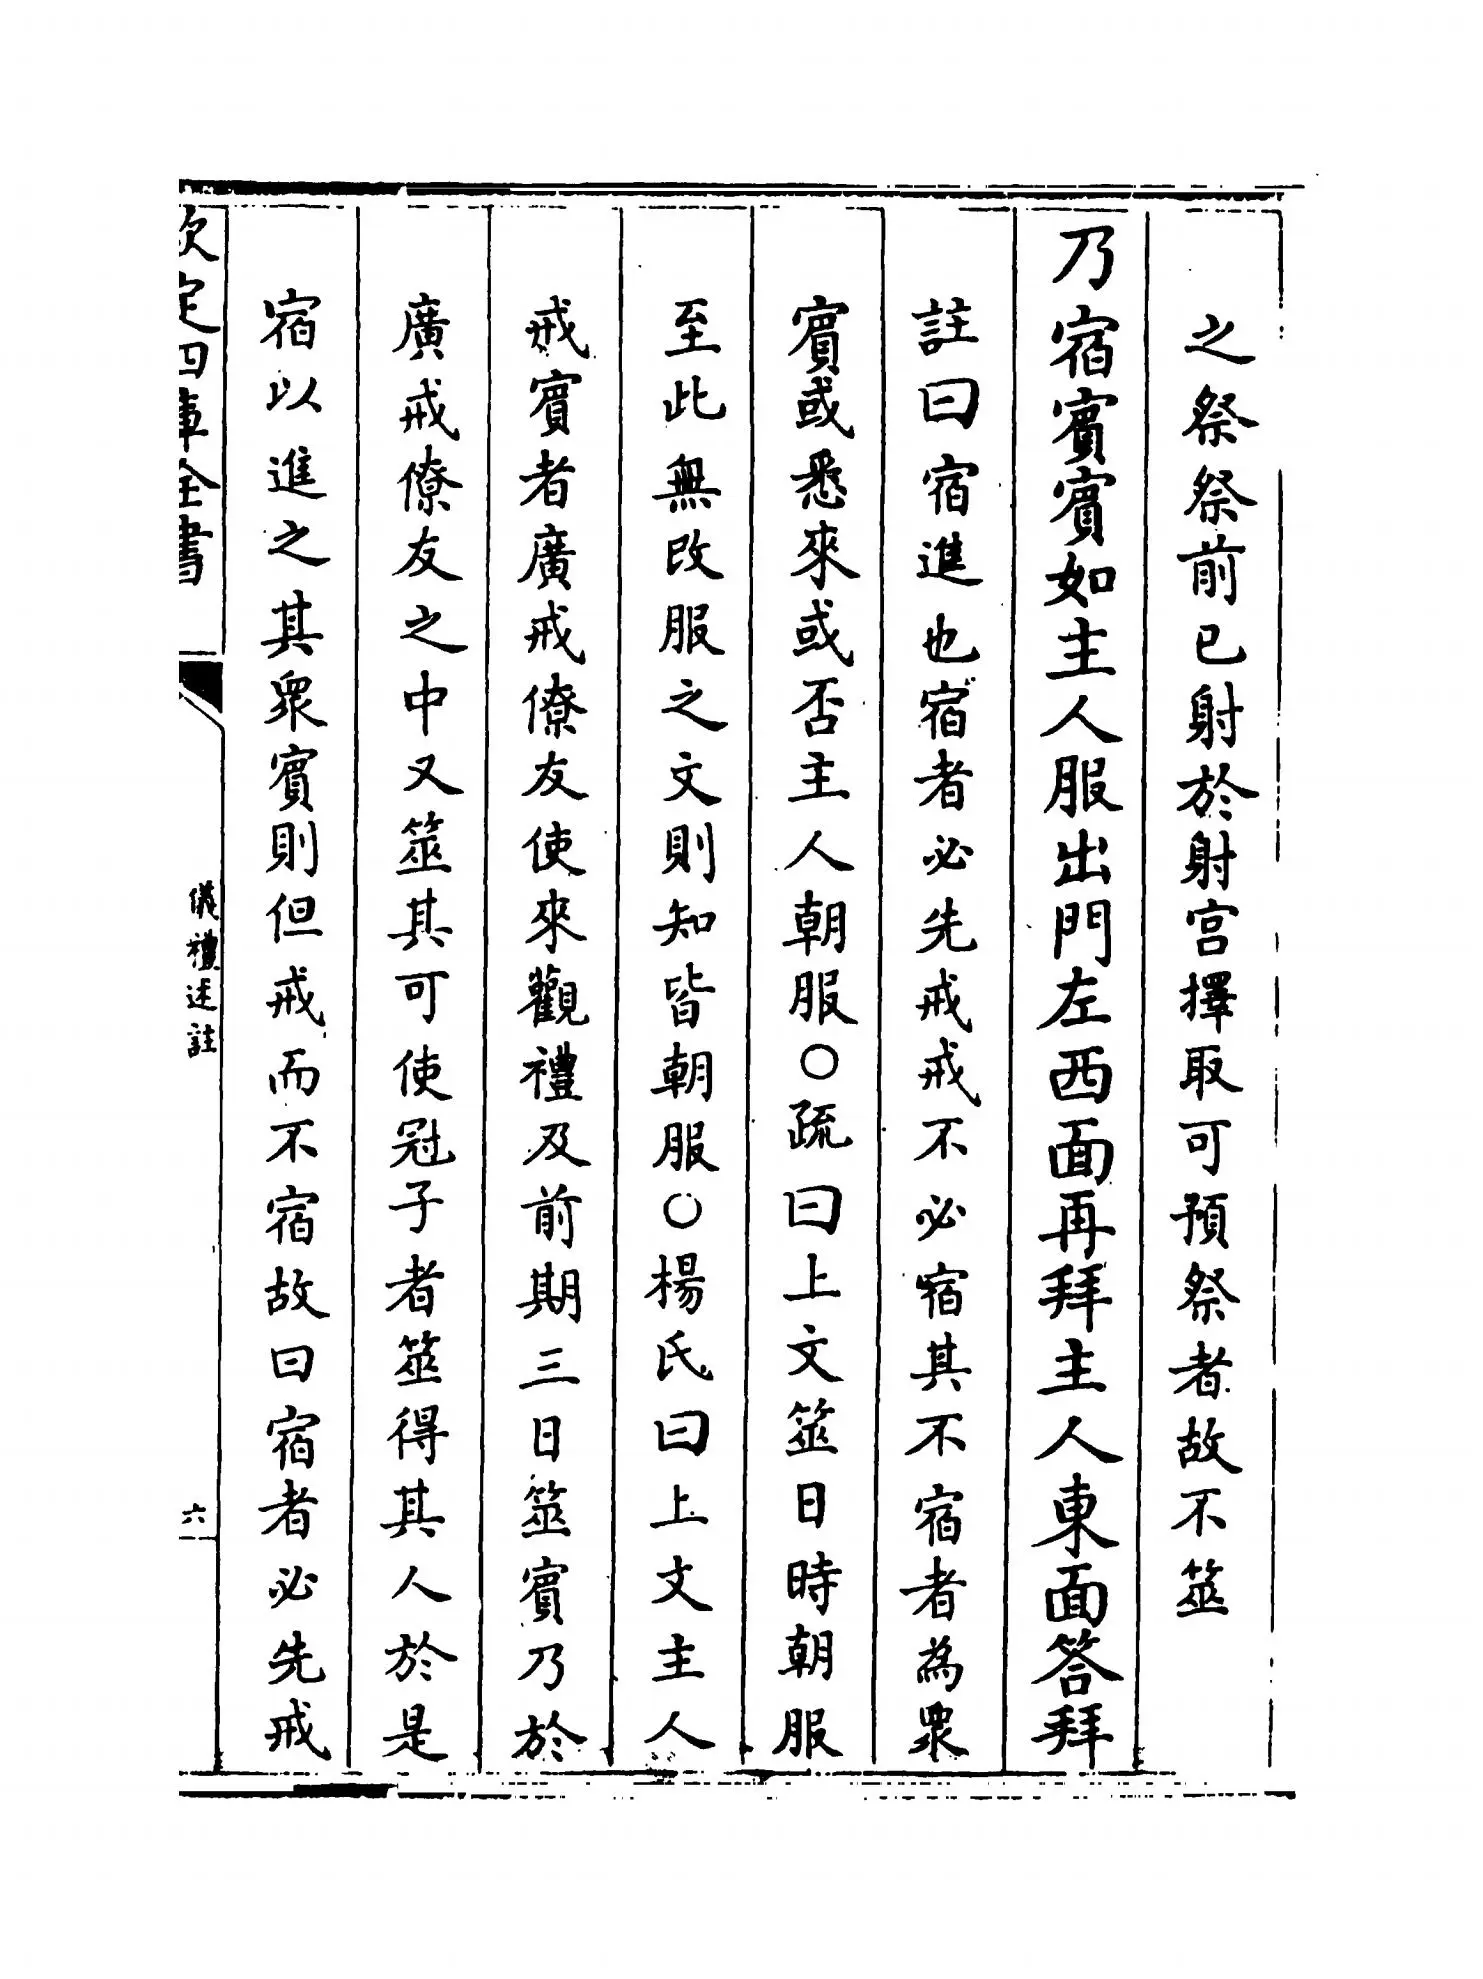 之祭祭前已射於射宫擇取可預祭者故不筮
乃宿賓賓如主人服出門左西面再拜主人東面答拜
註曰宿進也宿者必先戒戒不必宿其不宿者為衆
賓或悉來或否主人朝服○疏曰上文筮日時朝服
至此無改服之文則知皆朝服○楊氏曰上文主人
戒賓者廣戒僚友使來觀禮及前期三日筮賓乃於
廣戒僚友之中又筮其可使冠子者筮得其人於是
宿以進之其衆賓則但戒而不宿故曰宿者必先戒
欽定四庫全書
儀禮述註
六